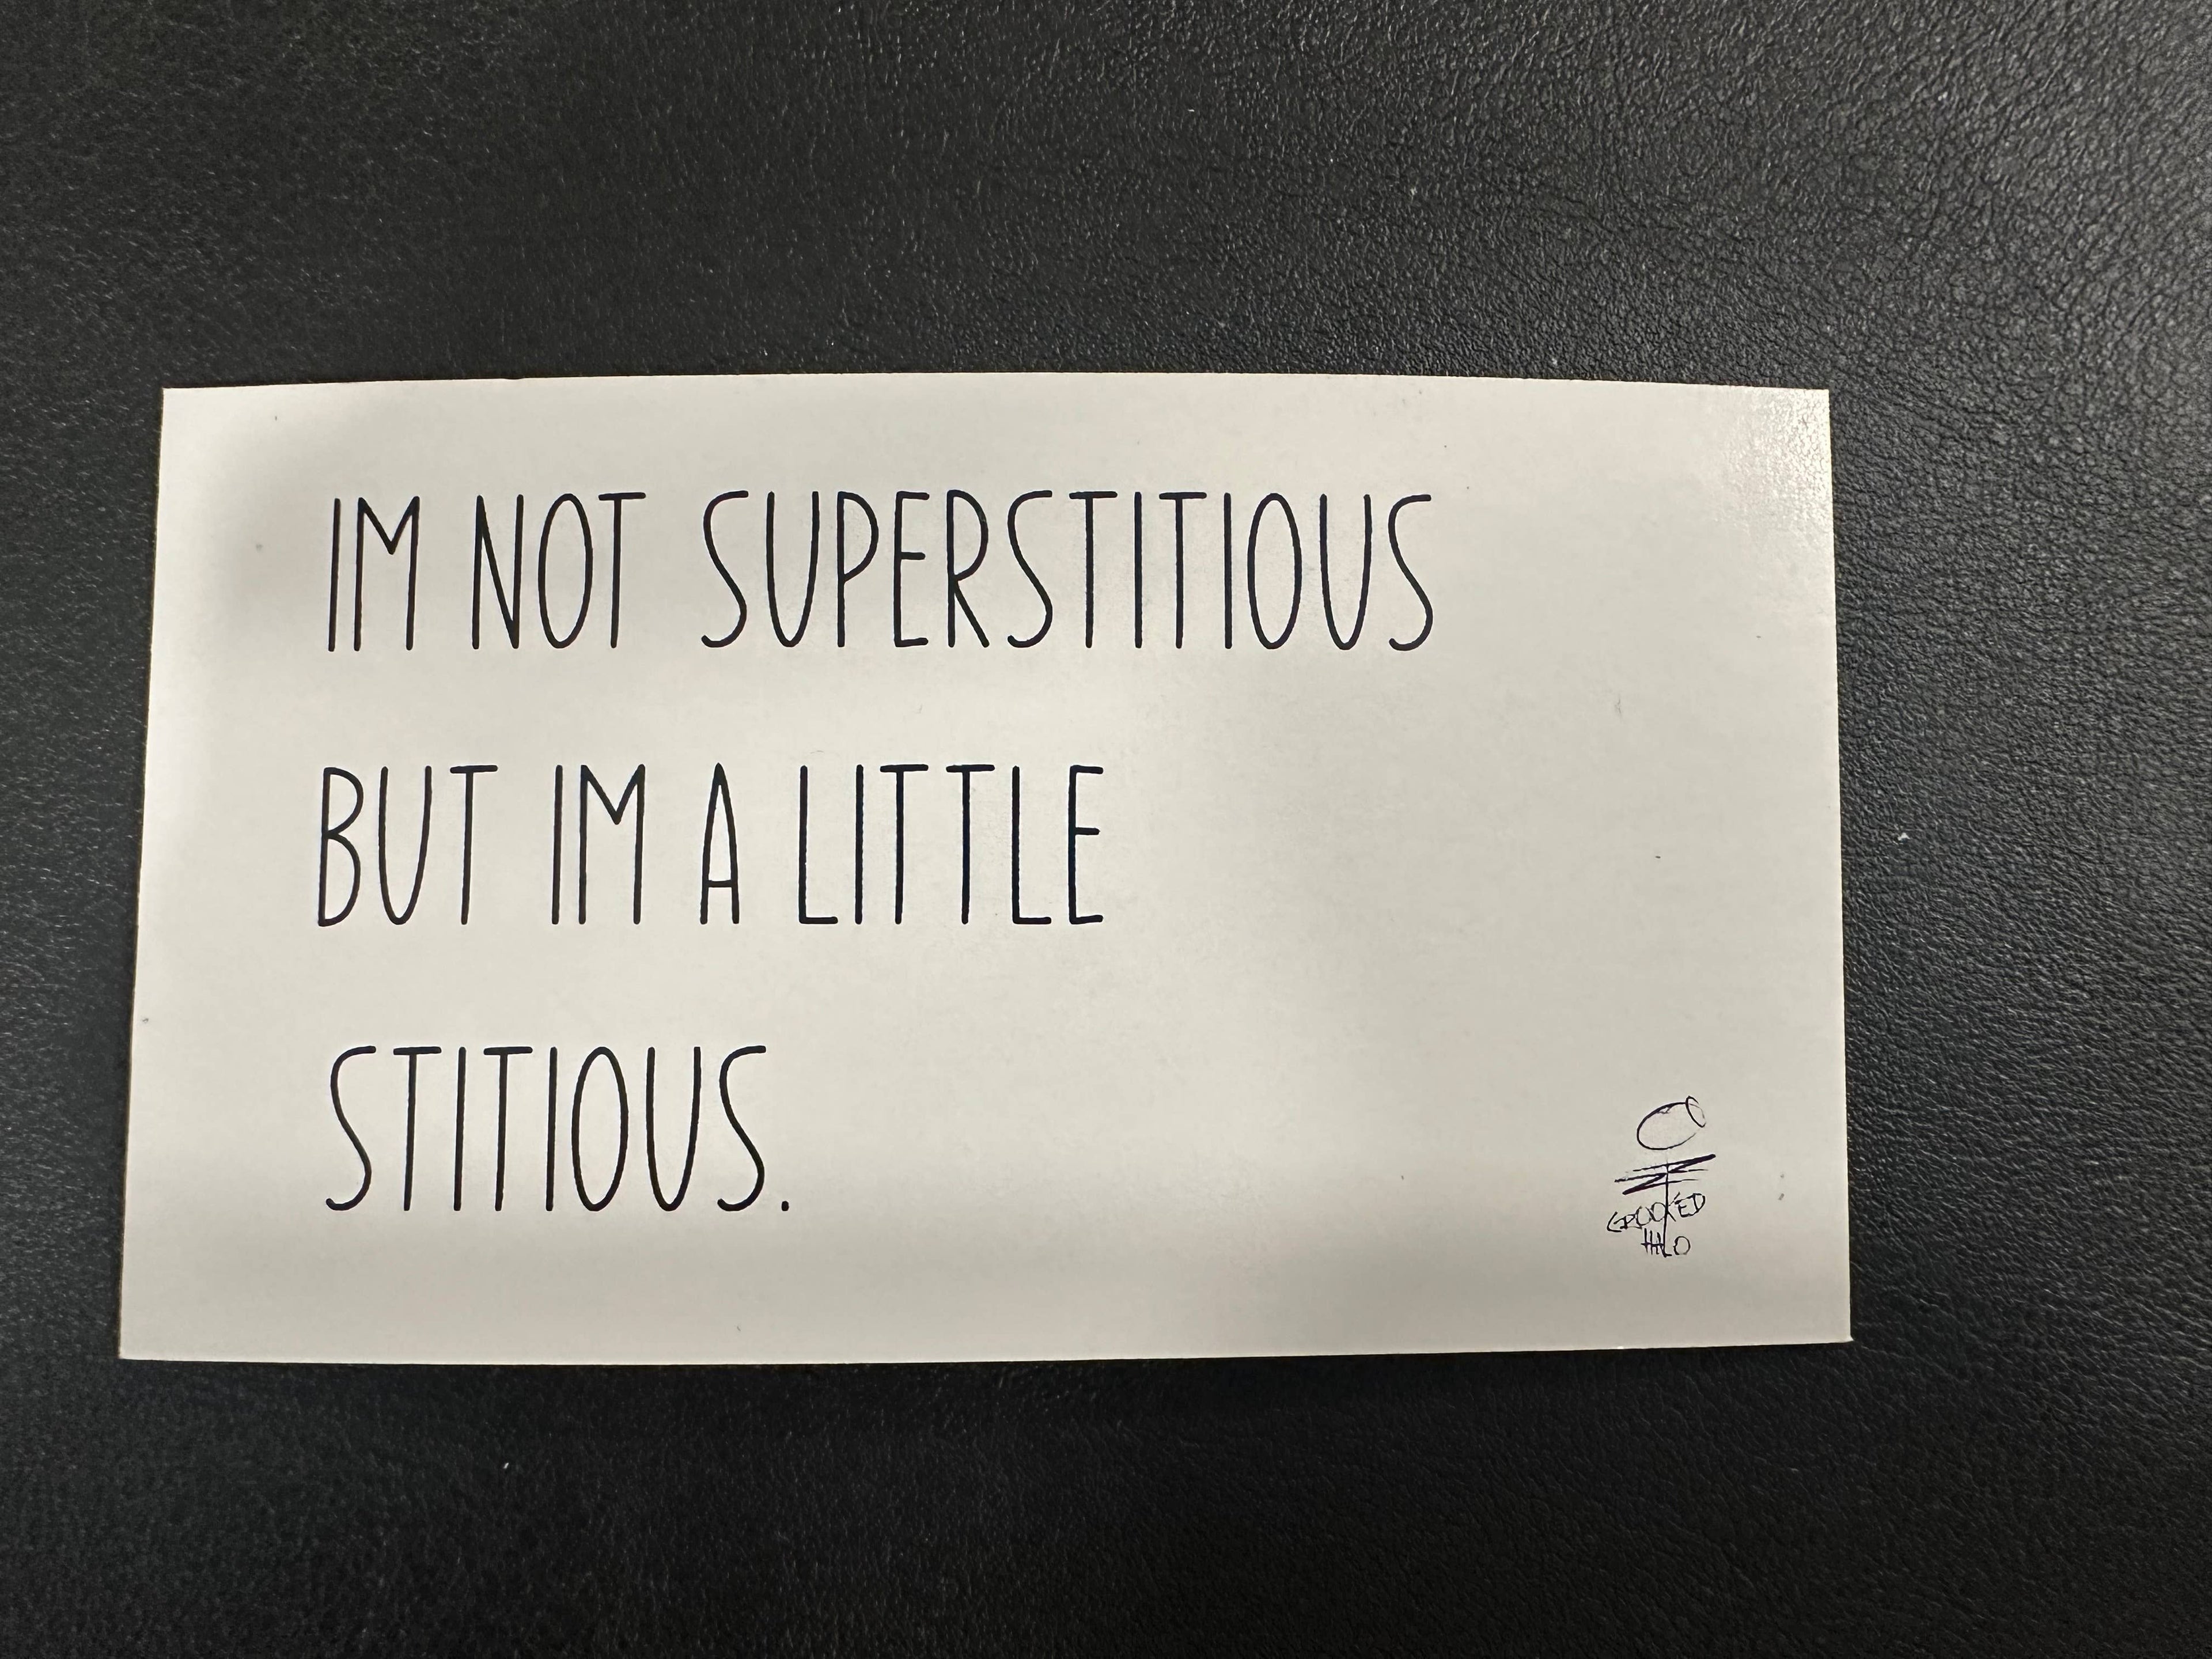 IM NOT SUPERSTITIOUS
BUT IM A LITTLE
STITIOUS.
CROOKED
HALO